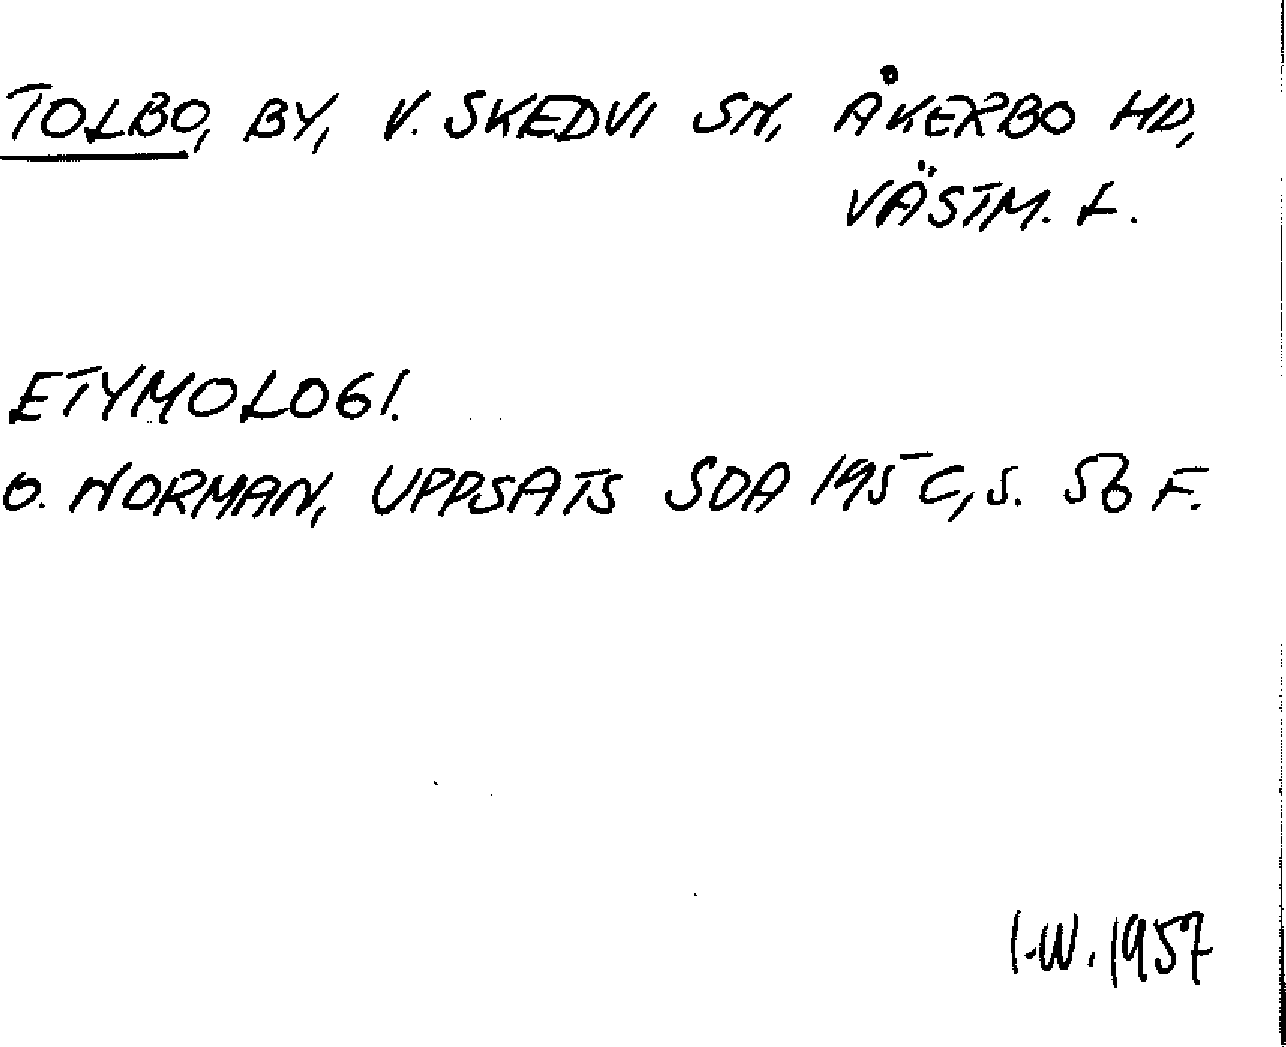 TOLBO, BY, V. SKEDVI SN, ÅKERBO HD,
VÄSTM. L.
ETYMOLOGI.
O. NORMAN, UPPSATS SOA 195 C, S. 56 F.
I.W. 1957